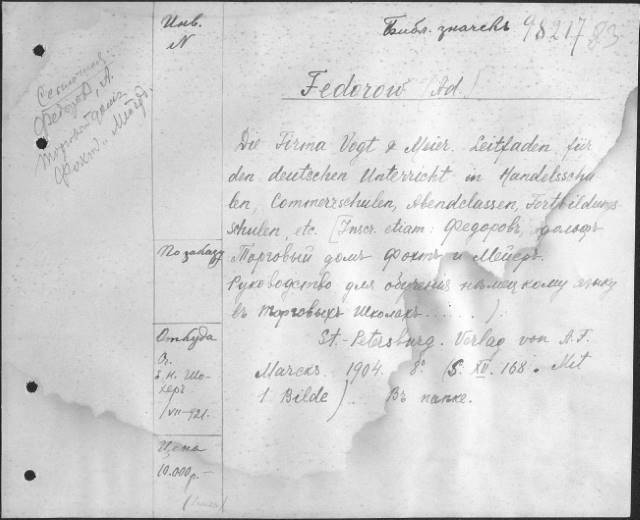 Инв.
N
Библ. значекъ 98217 83
Ссылочная
Федоров, А.
Торговый домъ
Фохт... Мейер.
Fedorow (Ad.)
Die Firma Vogt & Meier. Leitfaden für
den deutschen Unterricht in Handelsschu
len, Commerzschulen, Abendclassen, Fortbildungs-
schulen, etc. [Inscr. etiam: Федоровъ, Адольфъ
Торговый домъ Фохтъ и Мейеръ.
Руководство для обученія нѣмецкому языку
въ торговыхъ школахъ.....).
St.-Petersburg. Verlag von A. F.
Marcks 1904. 8° (S. XV. 168. Mit
1 Bilde) Въ папке.
По заказу
Откуда
От
З. Н. Шо-
херъ
/VII-921.
Цена
10.000 р.—